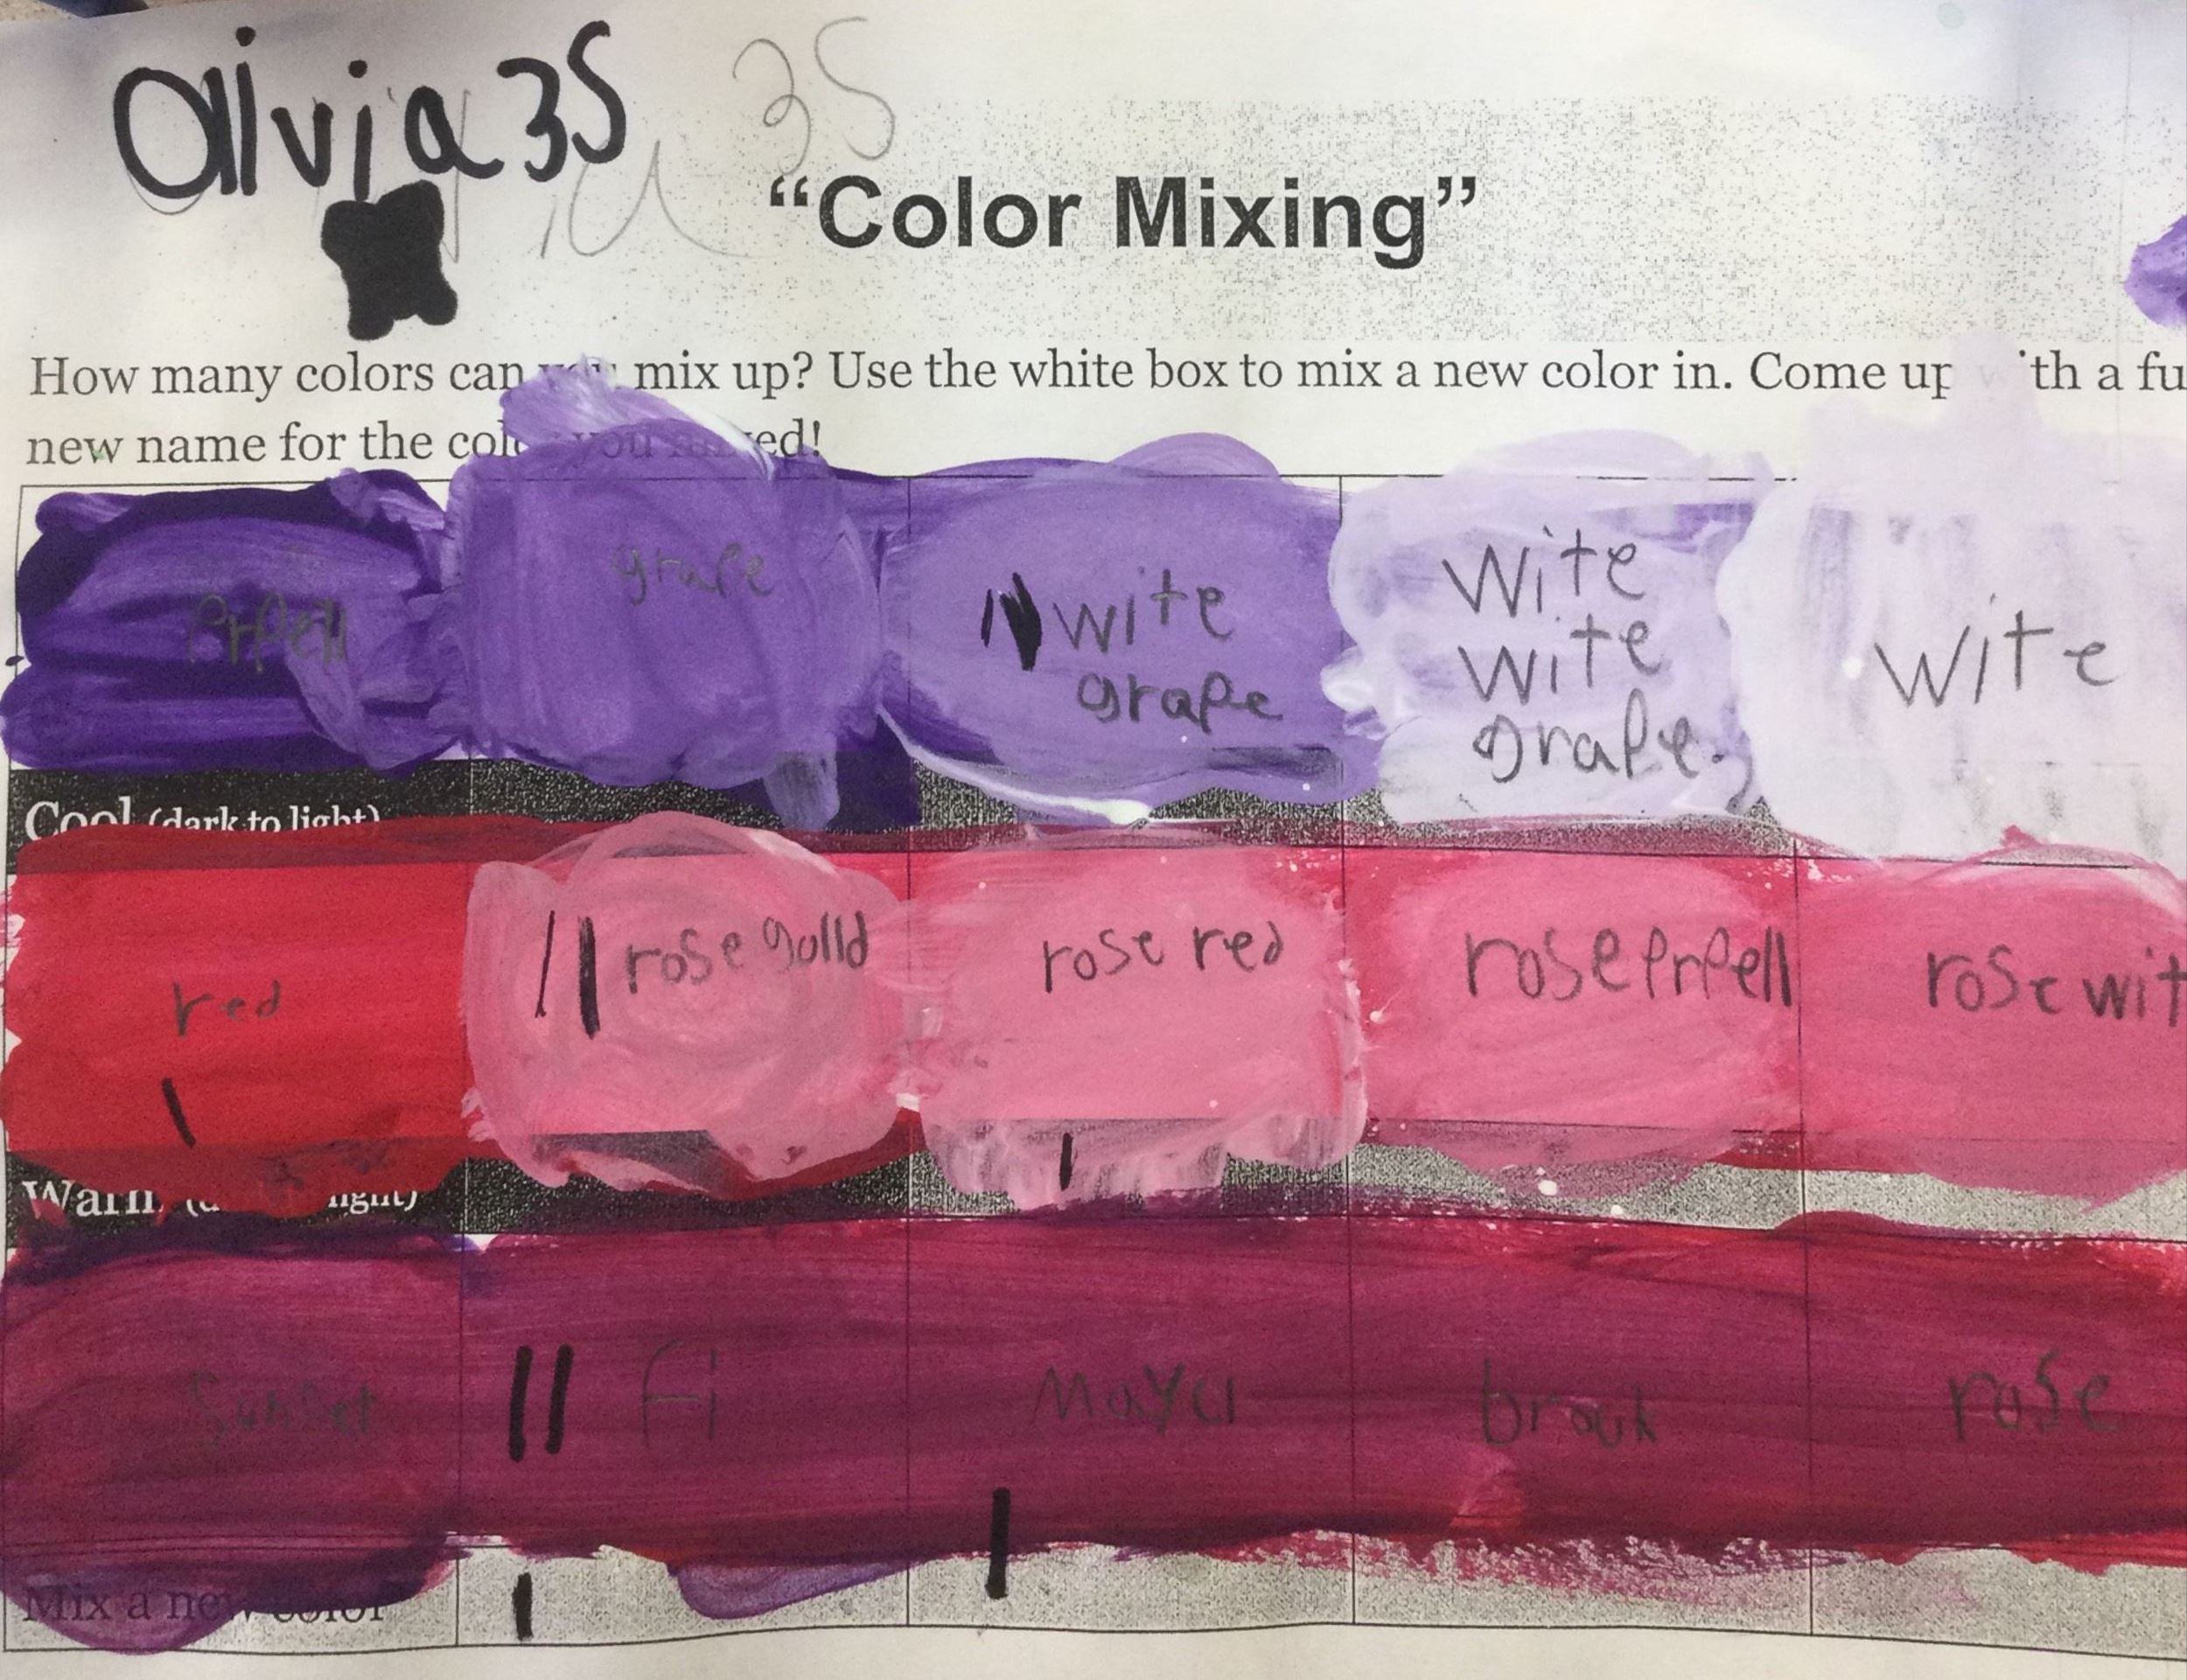 Olivia 3S
3S
“Color Mixing”
How many colors can you mix up? Use the white box to mix a new color in. Come up with a fu
new name for the color you mixed!
Prpell
grape
wite
grape
wite
wite
grape
wite
Cool (dark to light)
red
rose gulld
rose red
rose prpell
rose wit
Warm light)
Sunset
Fi
Maya
rose
Mix a new color